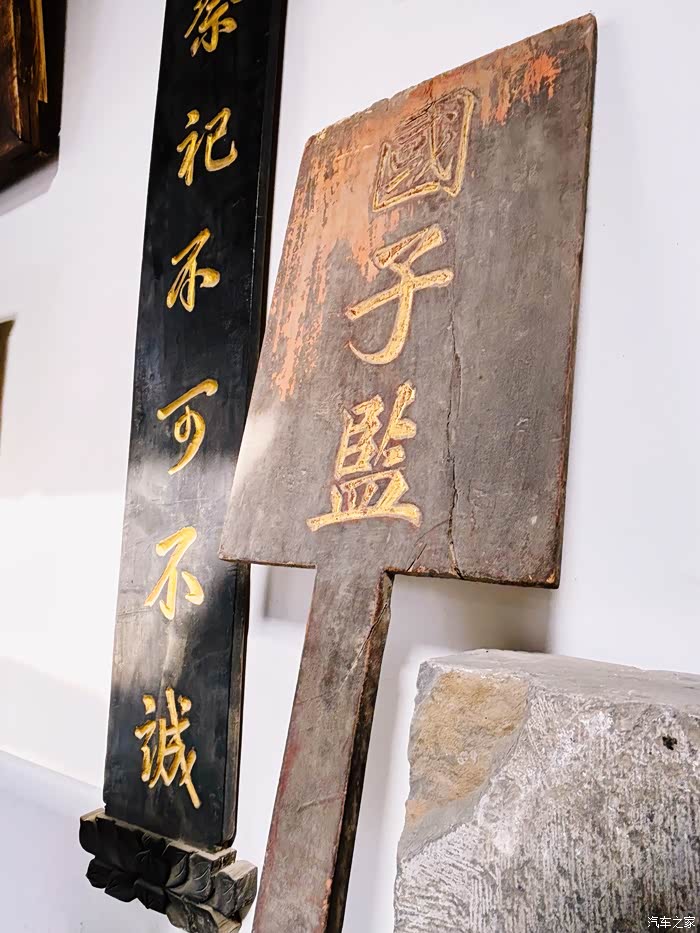 祭祀不可不誠
國子監
汽车之家